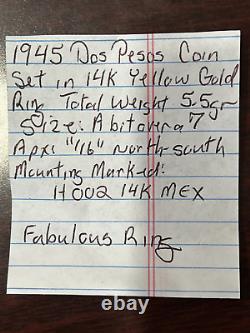 1945 Dos Pesos Coin
Set in 14K Yellow Gold
Ring Total Weight 5.5gr
Size: A bit over a 7
Apx: "1/16" north-south
Mounting Marked:
H002 14K MEX
Fabulous Ring